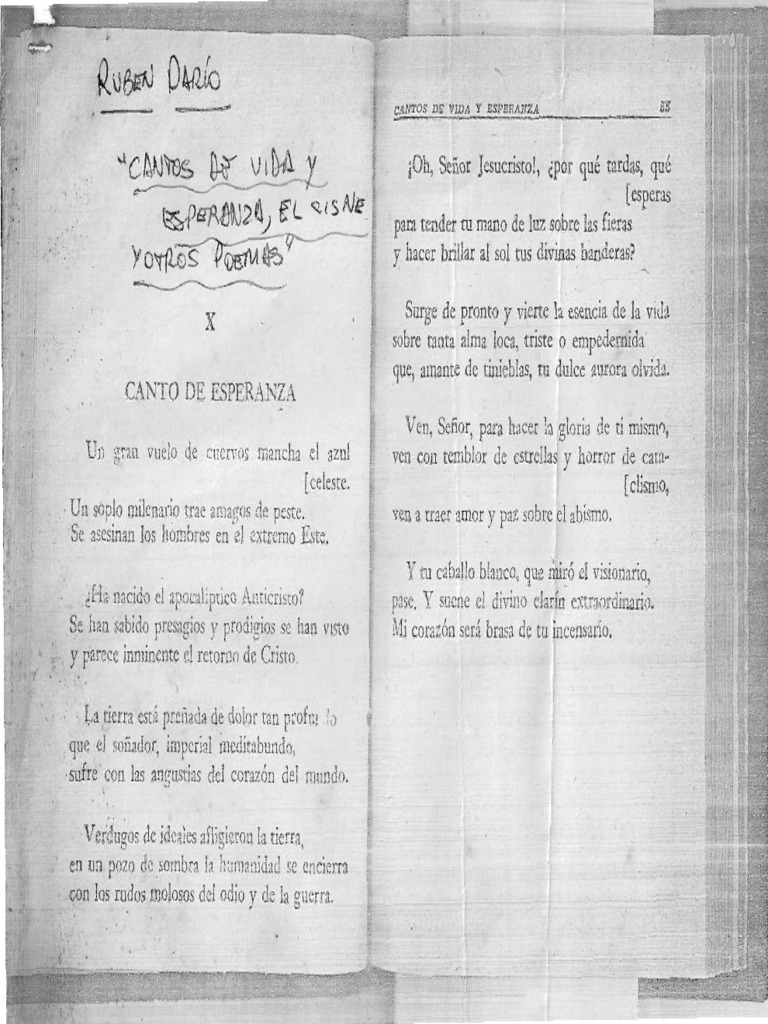 RUBEN DARÍO
"CANTOS DE VIDA Y
ESPERANZA, EL CISNE
Y OTROS POEMAS"
X
CANTO DE ESPERANZA
Un gran vuelo de cuervos mancha el azul
[celeste.
Un soplo milenario trae amagos de peste.
Se asesinan los hombres en el extremo Este.
¿Ha nacido el apocalíptico Anticristo?
Se han sabido presagios y prodigios se han visto
y parece inminente el retorno de Cristo.
La tierra está preñada de dolor tan profundo
que el soñador, imperial meditabundo,
sufre con las angustias del corazón del mundo.
Verdugos de ideales afligieron la tierra,
en un pozo de sombra la humanidad se encierra
con los rudos molosos del odio y de la guerra.
CANTOS DE VIDA Y ESPERANZA 55
¡Oh, Señor Jesucristo!, ¿por qué tardas, qué
[esperas
para tender tu mano de luz sobre las fieras
y hacer brillar al sol tus divinas banderas?
Surge de pronto y vierte la esencia de la vida
sobre tanta alma loca, triste o empedernida
que, amante de tinieblas, tu dulce aurora olvida.
Ven, Señor, para hacer la gloria de ti mismo,
ven con temblor de estrellas y horror de cata-
[clismo,
ven a traer amor y paz sobre el abismo.
Y tu caballo blanco, que miró el visionario,
pase. Y suene el divino clarín extraordinario.
Mi corazón será brasa de tu incensario.